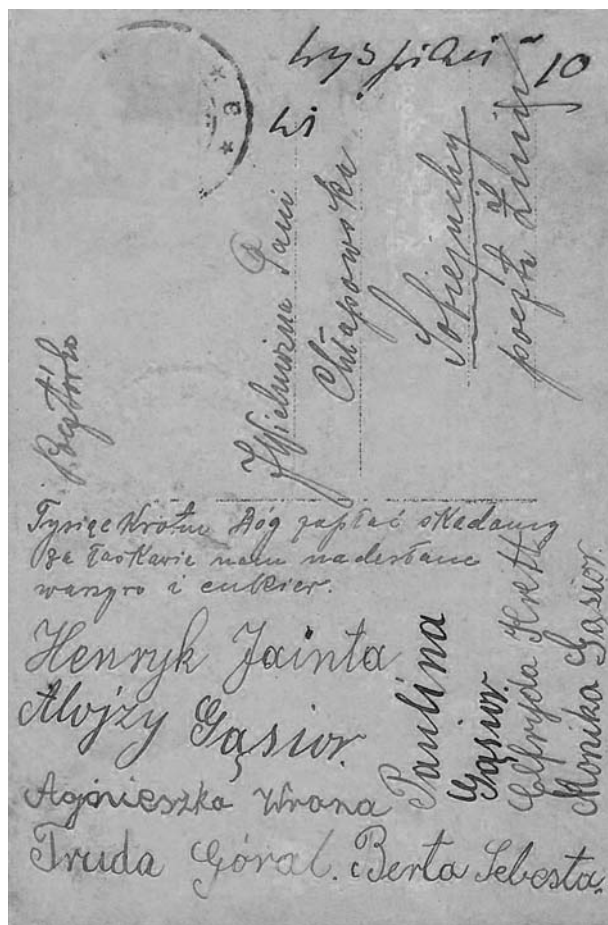 10
JWielmożna Pani
Chłapowska
Sobiejuchy
poczta Żnin
Tysiąckrotne Bóg zapłać składamy
za łaskawie nam nadesłane
warzywo i cukier.
Henryk Jainta
Alojzy Gąsior.
Agnieszka Wrona
Truda Góral.
Berta Sebesta.
Paulina
Gąsior.
Elfryda Krett
Monika Gąsior.
a